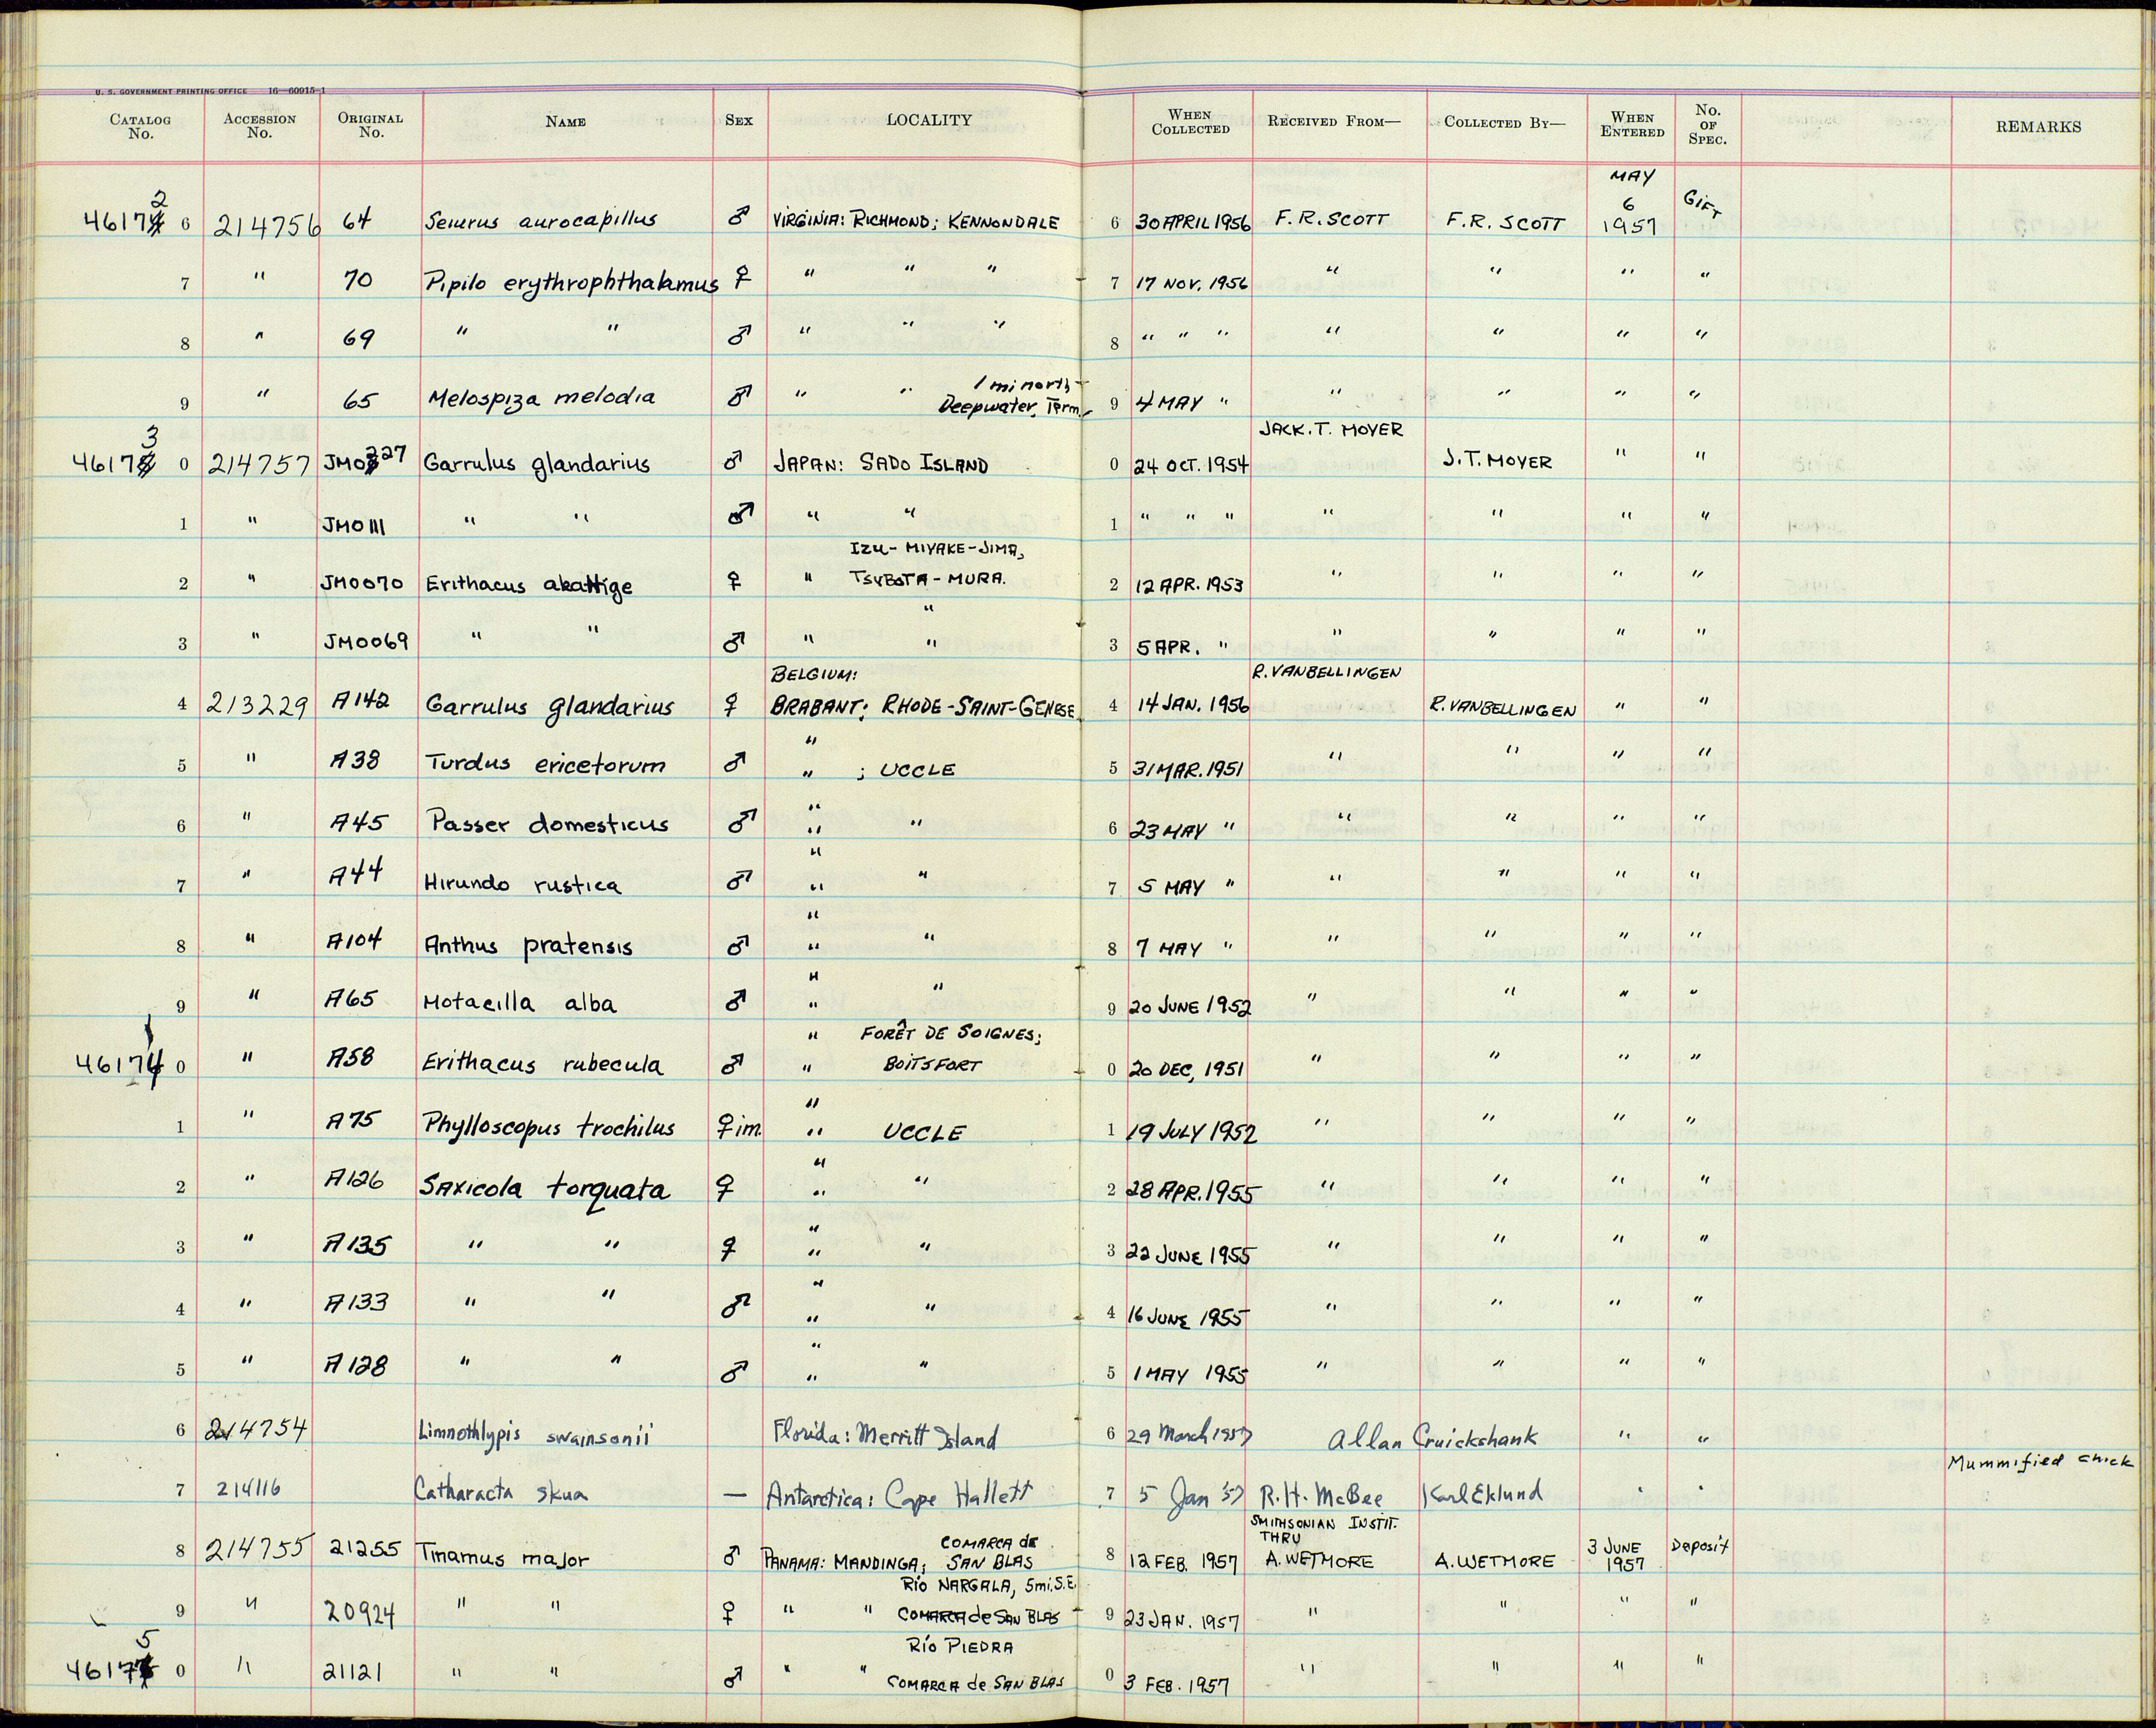 U. S. GOVERNMENT PRINTING OFFICE 16—60915-1
CATALOG No. ACCESSION No. ORIGINAL No. NAME SEX LOCALITY WHEN COLLECTED RECEIVED FROM— COLLECTED BY— WHEN ENTERED No. OF SPEC. REMARKS
461726 214756 64 Seiurus aurocapillus ♂ VIRGINIA: RICHMOND; KENNONDALE 6 30 APRIL 1956 F.R. SCOTT F.R. SCOTT MAY 6 1957 GIFT
7 " 70 Pipilo erythrophthalamus ♀ " " " 7 17 NOV. 1956 " " " "
8 " 69 " " ♂ " " " 8 " " " " " " "
9 " 65 Melospiza melodia ♂ " " 1 mi north Deepwater, Term. 9 4 MAY " " " " "
461730 214757 JM0227 Garrulus glandarius ♂ JAPAN: SADO ISLAND 0 24 OCT. 1954 JACK. T. MOYER J.T. MOYER " "
1 " JM0111 " " ♂ " " 1 " " " " " " "
2 " JM0070 Erithacus akahige ♀ " IZU-MIYAKE-JIMA, TSUBOTA-MURA. 2 12 APR. 1953 " " " "
3 " JM0069 " " ♂ " " " 3 5 APR. " " " " "
4 213229 A142 Garrulus glandarius ♀ BELGIUM: BRABANT; RHODE-SAINT-GENESE 4 14 JAN. 1956 R. VANBELLINGEN R. VANBELLINGEN " "
5 " A38 Turdus ericetorum ♂ " " ; UCCLE 5 31 MAR. 1951 " " " "
6 " A45 Passer domesticus ♂ " " " 6 23 MAY " " " " "
7 " A44 Hirundo rustica ♂ " " " 7 5 MAY " " " " "
8 " A104 Anthus pratensis ♂ " " " 8 7 MAY " " " " "
9 " A65 Motacilla alba ♂ " " " 9 20 JUNE 1952 " " " "
461740 " A58 Erithacus rubecula ♂ " " FORÊT DE SOIGNES; BOITSFORT 0 20 DEC, 1951 " " " "
1 " A75 Phylloscopus trochilus ♀im. " " UCCLE 1 19 JULY 1952 " " " "
2 " A126 Saxicola torquata ♀ " " " 2 28 APR. 1955 " " " "
3 " A135 " " ♀ " " " 3 22 JUNE 1955 " " " "
4 " A133 " " ♂ " " " 4 16 JUNE 1955 " " " "
5 " A128 " " ♂ " " " 5 1 MAY 1955 " " " "
6 214754 Limnothlypis swainsonii Florida: Merritt Island 6 29 March 1957 Allan Cruickshank " "
7 214116 Catharacta skua — Antarctica: Cape Hallett 7 5 Jan 57 R.H. McBee Karl Eklund " " Mummified chick
8 214755 21255 Tinamus major ♂ PANAMA: MANDINGA; COMARCA de SAN BLAS 8 12 FEB. 1957 SMITHSONIAN INSTIT. THRU A. WETMORE A. WETMORE 3 JUNE 1957 Deposit
9 " 20924 " " ♀ " " RÍO NARGALA, 5mi. S.E. COMARCA de SAN BLAS 9 23 JAN. 1957 " " " "
461750 " 21121 " " ♂ " " RÍO PIEDRA COMARCA de SAN BLAS 0 3 FEB. 1957 " " " "